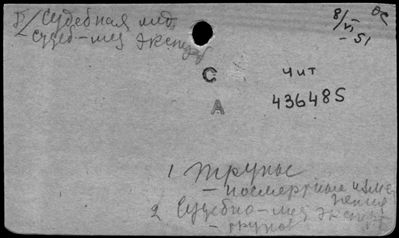 Судебная мед.
судеб-мед экспер
8/VI
-51
ОС
С
А
Чит
436485
1 Трупы
- посмертные изме
нения
2 Судебно-мед экспер
- трупов